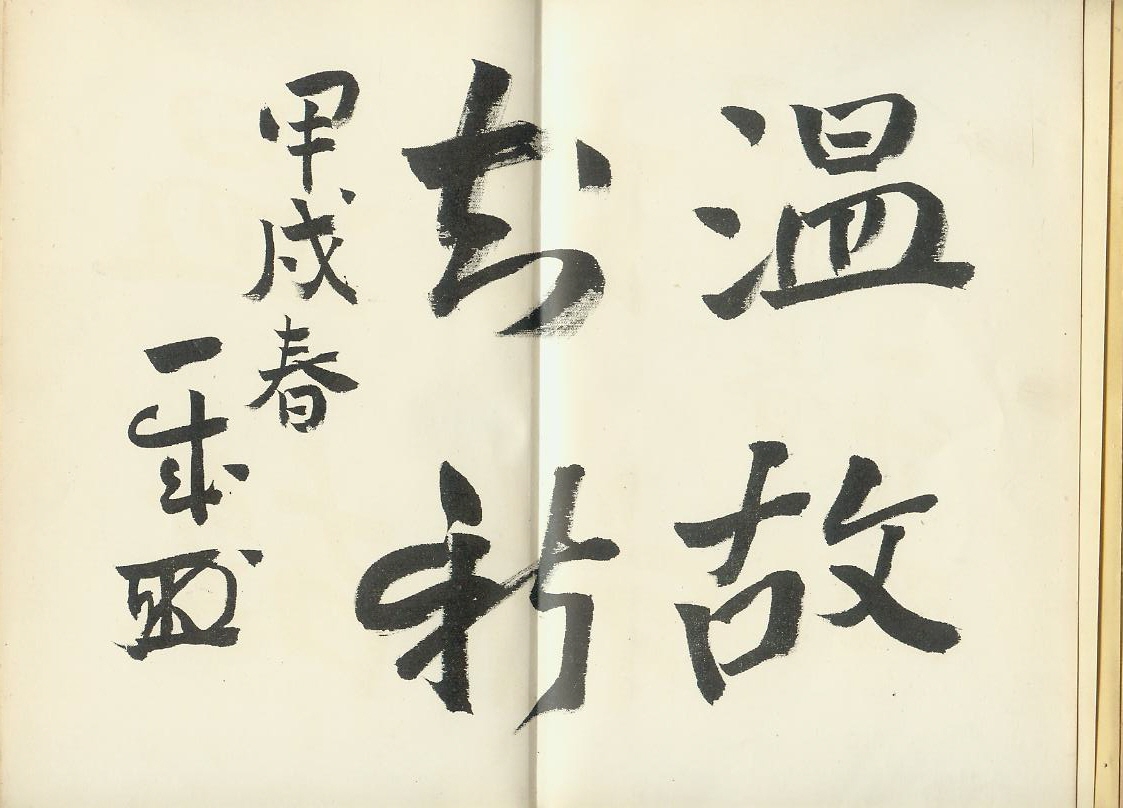 温故
知新
甲戌春
一成